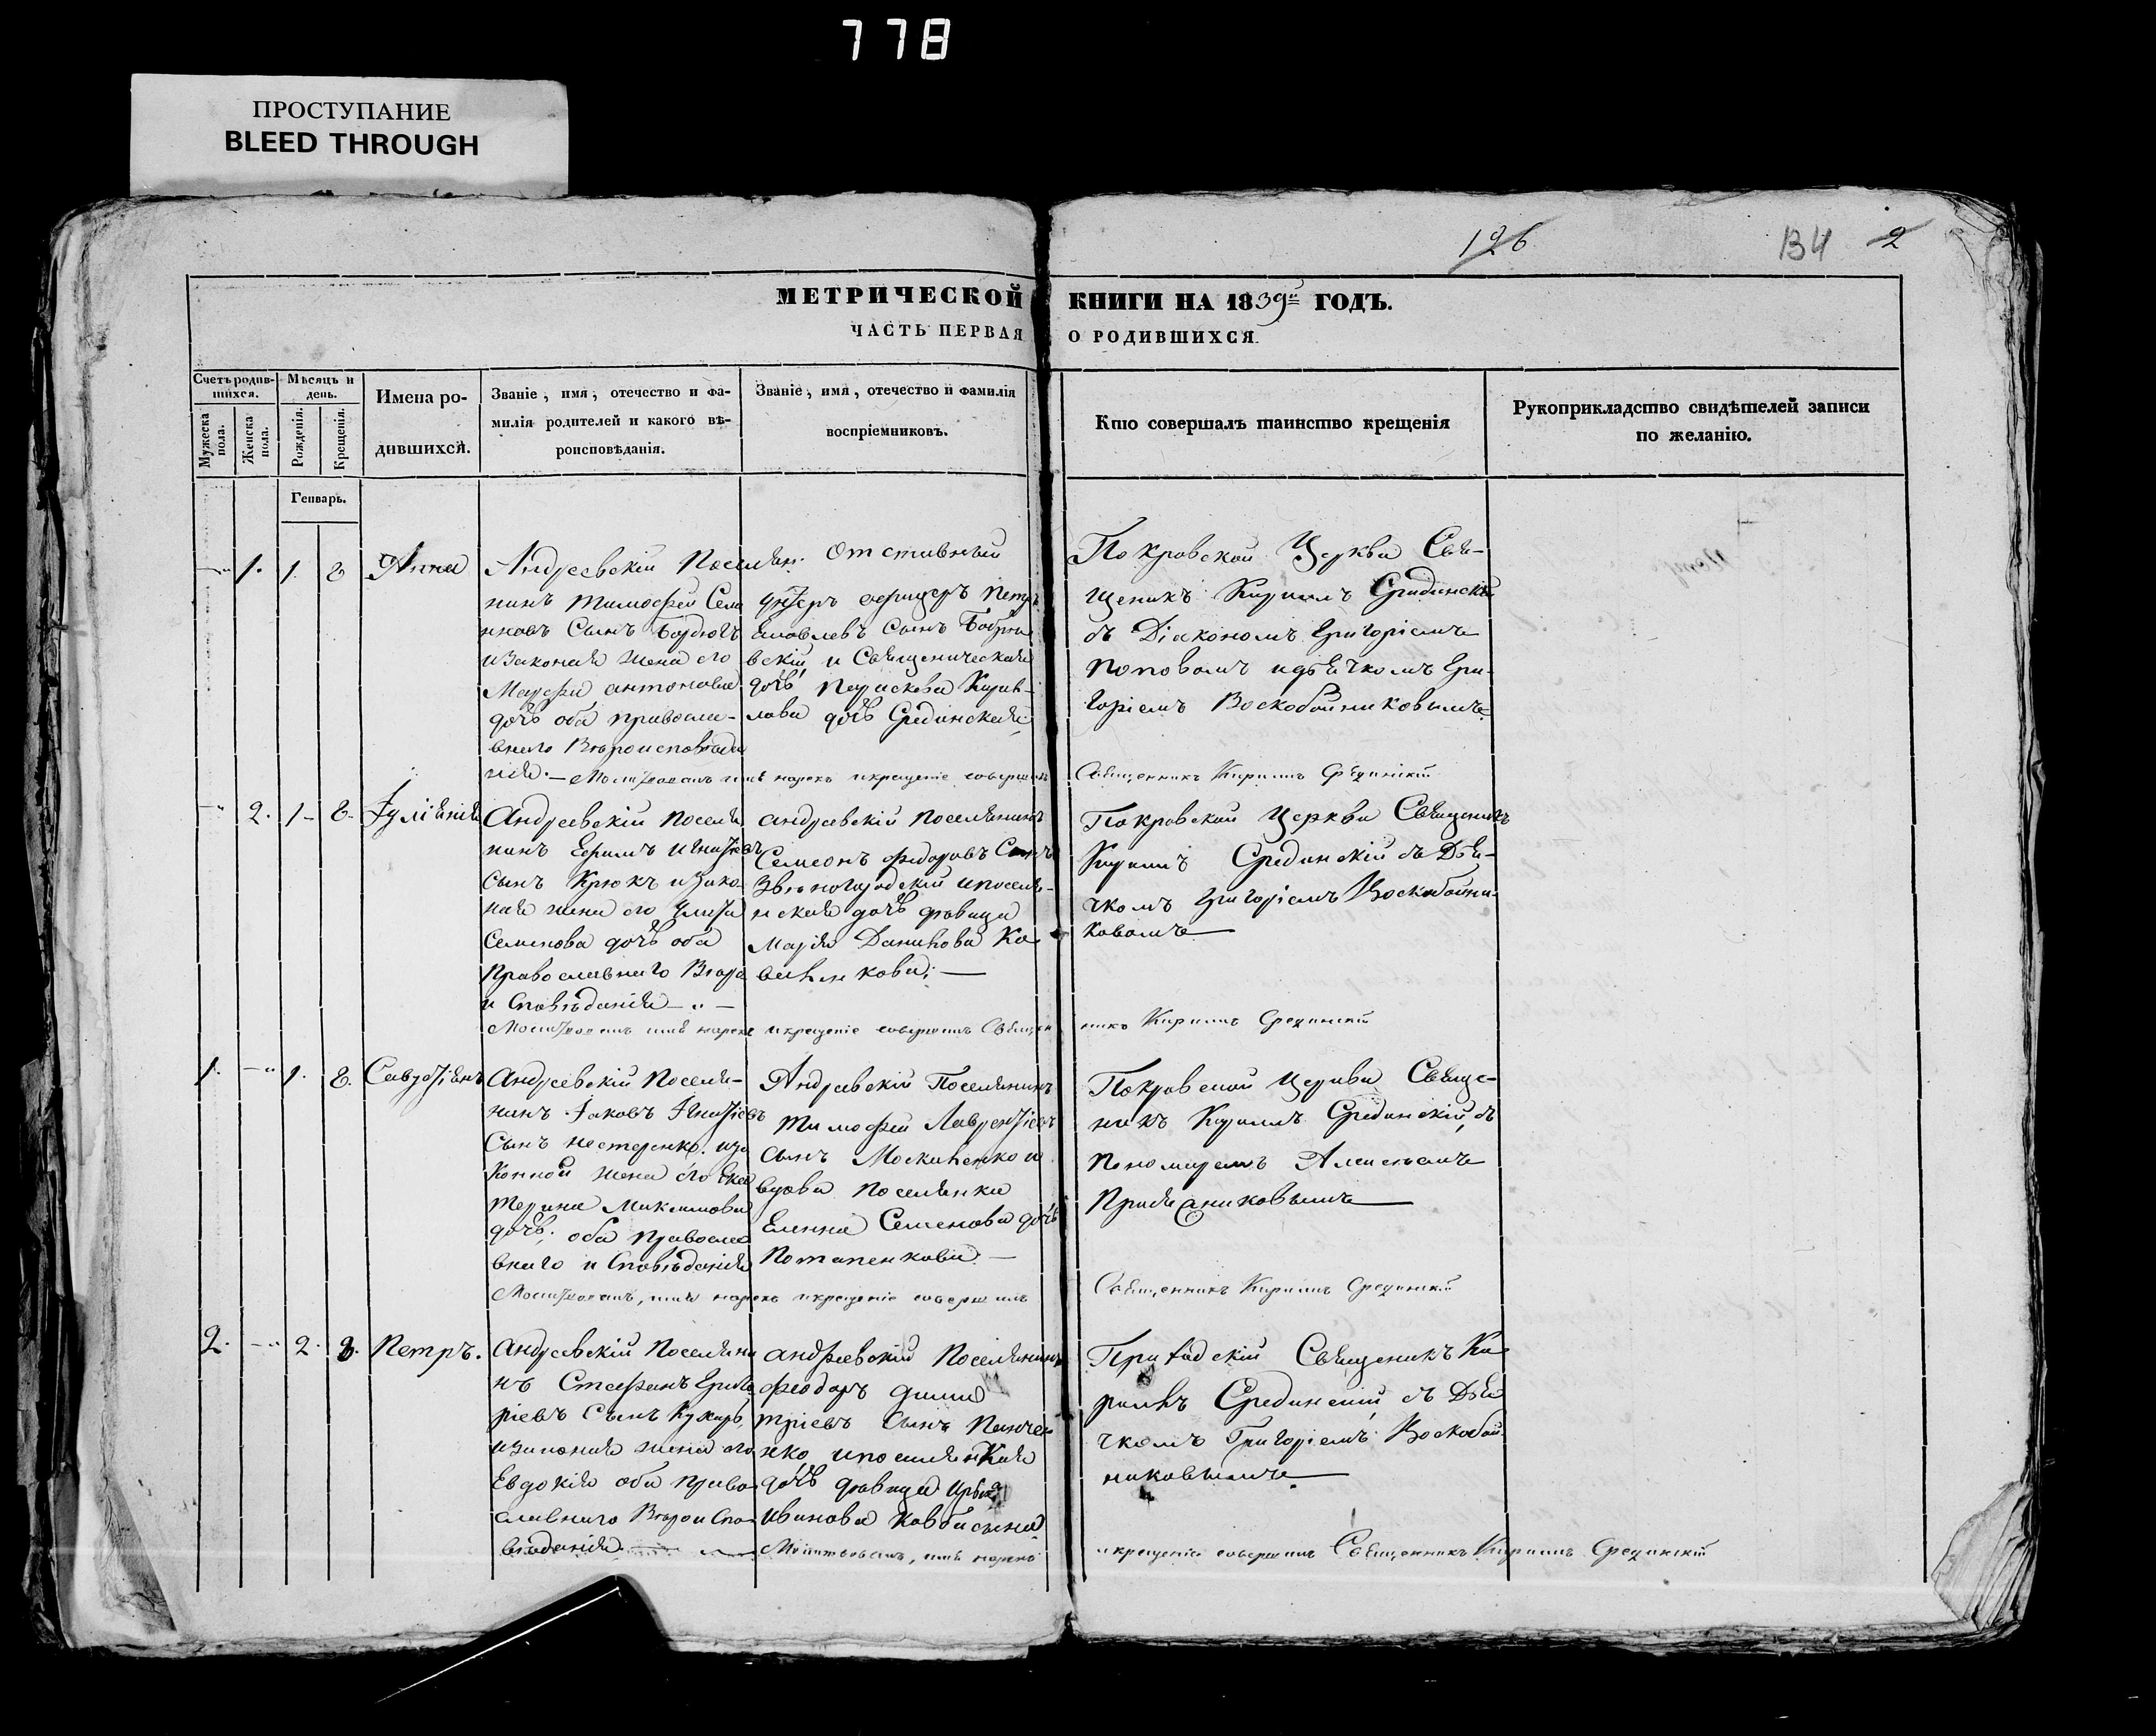 778
ПРОСТУПАНИЕ
BLEED THROUGH
126
134 2
МЕТРИЧЕСКОЙ КНИГИ НА 1839й ГОДЪ.
ЧАСТЬ ПЕРВАЯ О РОДИВШИХСЯ.
Счетъ родив-
шихся.
Мужеска
пола.
Женска
пола.
Мѣсяцъ и
день.
Рожденія.
Крещенія.
Имена ро-
дившихся.
Званіе, имя, отечество и фа-
милія родителей и какого вѣ-
роисповѣданія.
Званіе, имя, отечество и фамилія
воспріемниковъ.
Кто совершалъ таинство крещенія
Рукоприкладство свидѣтелей записи
по желанію.
Генварь.
1. 1. 8 Анна
Андреевскій Поселян
нинъ Тимофей Сема
новъ Сынъ Бордюгъ
изаконая жена его
Марфа антонова
дочь оба православ-
внаго Вѣроисповѣда
нія.— Молитвовалъ имя нарекъ и крещеніе совершилъ
Отставный
унтеръ офицеръ Петръ
Яковлевъ Сынъ
вскій и Священическая
дочь Параскева Кирил-
лова дочь Срединская
Покровской Церкви Свя-
щеникъ Кирилъ Срединскій
съ Діакономъ Григоріемъ
Поповымъ идьячкомъ Гри-
горіемъ Воскобойниковымъ
Священникъ Кириллъ Срединскій
2. 1 8 Іуліянія
Андреевскій Поселя
нинъ Ефимъ Игнатіевъ
Сынъ Крюкъ изако
ная жена его Улита
Семенова дочь оба
Православнаго Вѣро
и Сповѣданія
Молитвовалъ имя нарекъ и крещеніе совершилъ Священ
андреевскій Поселянинъ
Семеонъ Федоровъ Сынъ
Звѣногородскій ипоселян-
нская дочь дѣвица
Марія Данилова Ко
валенкова.—
Покровской Церкви Священикъ
Кирилъ Срединскій съ Дья-
чкомъ Григоріемъ Воскобойни-
ковымъ
никъ Кириллъ Срединскій
1. 1. 8. Савастіянъ
Андреевскій Поселя-
нинъ Іаковъ Игнатіевъ
Сынъ Нестеренко. иза
конной жена его Ека
терина Максимова
дочь. оба православ
внаго и Сповѣданія
Молитвовалъ, имя нарекъ и крещеніе совершилъ
Андреевскій Поселянинъ
Тимофей Лаврентіевъ
Сынъ Москаленко и
вдова поселянка
Еленна Семенова дочь
Потапенкова.—
Покровской Церкви Священ-
никъ Кирилъ Срединскій, съ
Пономаремъ Алексѣемъ
Священникъ Кириллъ Срединскій
2. 2. 8. Петръ.
Андреевскій Поселяни
нъ Стефанъ Григо
ріевъ Сынъ Кухарь,
изаконая жена его
Евдокія оба право
славнаго Вѣрои Спо
вѣданія
андреевскій Поселянинъ
Феодоръ Дими
тріевъ Сынъ Панчен
нко, ипоселянская
дочь дѣвица
иванова
Молитвовалъ, имя нарекъ
Приходскій Священикъ Ки
рилъ Срединскій, съ Дья
чкомъ Григоріемъ Воскобой
никовымъ
и крещеніе совершилъ Священникъ Кириллъ Срединскій